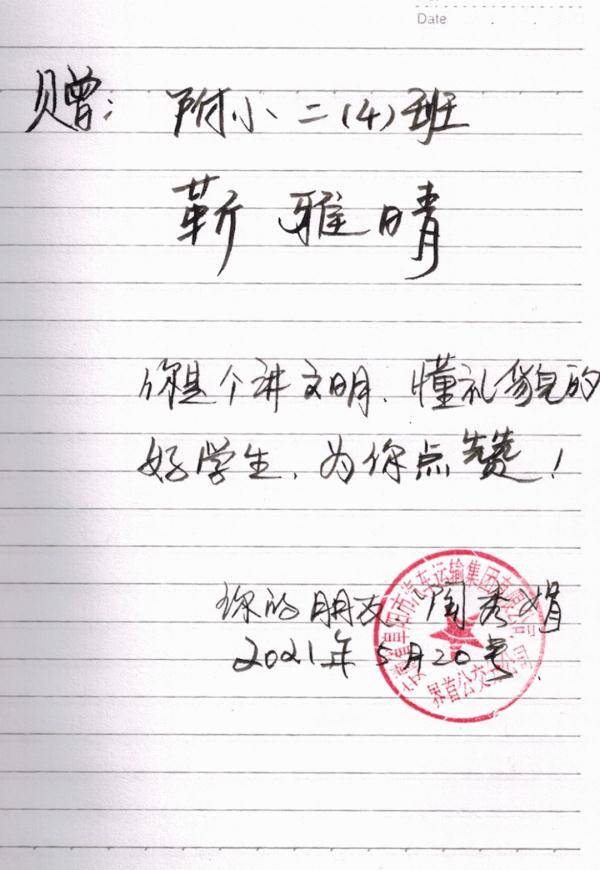 Date
赠: 附小二(4)班
靳雅晴
你是个讲文明、懂礼貌的
好学生、为你点赞!
你的朋友 陶秀娟
2021年5月20号
安徽省阜阳市汽车运输集团有限公司
界首公交分公司